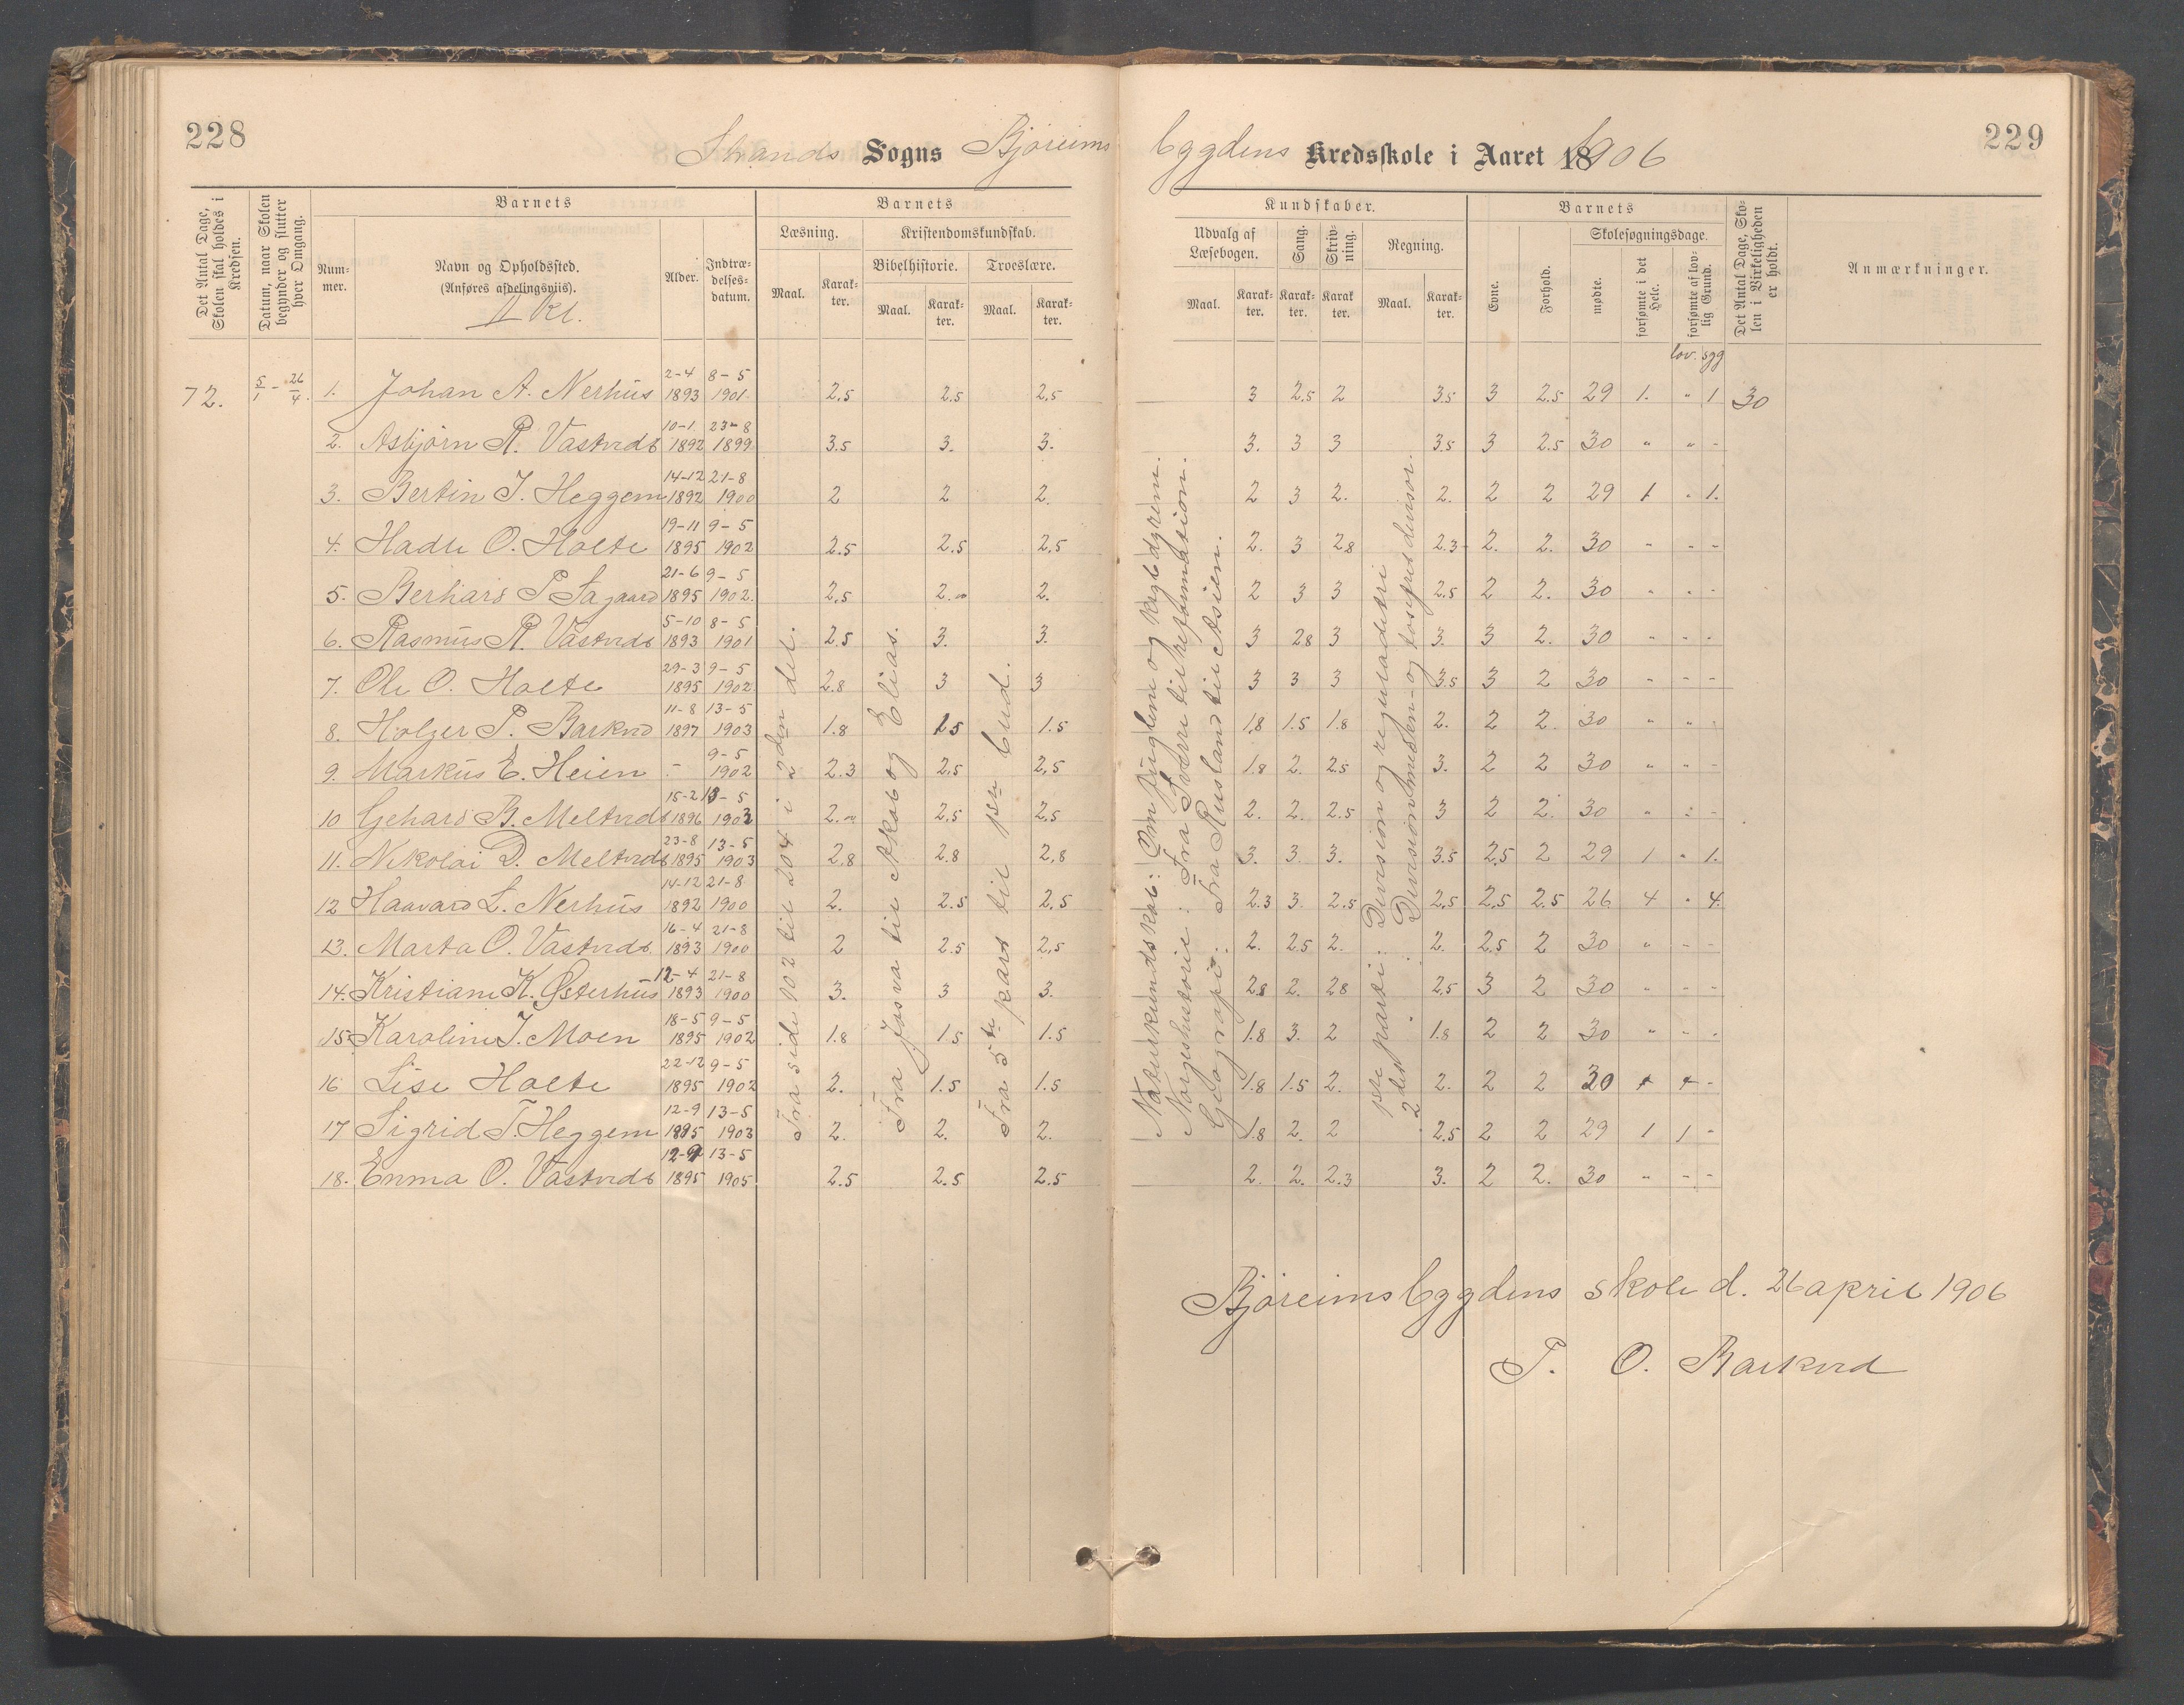 228
Strands Sogns Bjøreims
bygdens Kredsskole i Aaret 1906
229
Det Antal Dage, Skolen skal holdes i Kredsen.
Datum, naar Skolen begynder og slutter hver Omgang.
Barnets
Nummer.
Navn og Opholdssted.
(Anføres afdelingsviis).
Alder.
Indtrædelsesdatum.
Barnets
Læsning.
Kristendomskundskab.
Bibelhistorie. Troeslære.
Maal. Karakter. Maal. Karakter. Maal. Karakter.
Kundskaber.
Udvalg af Læsebogen.
Sang.
Skrivning.
Regning.
Maal. Karakter. Karakter. Karakter. Maal. Karakter.
Barnets
Evne.
Forhold.
Skolesøgningsdage.
mødte.
forsømte i det Hele.
forsømte af lovlig Grund.
Det Antal Dage, Skolen i Virkeligheden er holdt.
Anmærkninger.
kl.
lov. syg
72. 5/1 - 26/4.
1. Johan A. Nerhus 2-4 1893 8-5 1901. 2.5 2.5 2.5 3 2.5 2 3.5 3 2.5 29 1. " 1 30
2. Asbjørn R. Vastvedt 10-1. 1892 23-8 1899 3.5 3. 3. 3. 3 3 3.5 3 2.5 30 " " -
3. Bertin J. Heggem 14-12 1892 21-8 1900 2 2 2. 2 3 2. 2. 2 2 29 1 " 1.
4. Hadle O. Holte 19-11 1895 9-5 1902 2.5 2.5 2.5 2. 3 2.8 2.3 2. 2. 30 " - -
5. Berhard P. Sagaard 21-6 1895 9-5 1902. 2.5 2. 2. 2 3 3 2.5 2 2. 30 " " -
6. Rasmus R. Vastvedt 5-10 1893 8-5 1901 2.5 3. 3. 3 2.8 3 3. 3 2. 30 " - -
7. Ole O. Holte 29-3 1895 9-5 1902 2.8 3 3 3 3 3 3.5 3 2 30 - - -
8. Holger P. Barkved 11-8 1897 13-5 1903 1.8 1.5 1.5 1.8 1.5 1.8 2. 2 2. 30 " " -
9. Markus E. Heien - 9-5 1902 2.3 2.5 2.5 1.8 2. 2.5 3. 2 2 30 " " -
10 Gehard B. Meltvedt 15-2 1896 13-5 1903 2. 2.5 2.5 2. 2. 2.5 3 2 2. 30 " : -
11. Nikolai D. Meltvedt 23-8 1895 13-5 1903 2.8 2.8 2.8 3. 3. 3. 3.5 2.5 2 29 1 " 1.
12 Haavard L. Nerhus 14-12 1892 21-8 1900 2. 2.5 2.5 2.3 3. 2.5 2.5 2.5 2.5 26 4 " 4
13. Marta O. Vastvedt. 16-4 1893 21-8 1900 2 2.5 2.5 2. 2.5 2. 2. 2.5 2 30 " - -
14. Kristiane K. Østerhus 12-4 1893 21-8 1900 3. 3 3. 2.8 2. 2.8 2.5 3 2 30 " - -
15. Karoline J. Moen 18-5 1895 9-5 1902 1.8 1.5 1.5 1.8 3. 2 1.8 2 2 30 " " -
16 Lise Holte 22-12 1895 9-5 1902 2. 1.5 1.5 1.8 1.5 2. 2. 2 2 30 + + -
17 Sigrid T. Heggem 12-9 1895 13-5 1903 2. 2. 2. 1.8 2. 2 2.5 2 2 29 1 1 -
18. Emma O. Vastvedt 12-9 1895 13-5 1905 2.5 2.5 2.5 2. 2. 2.3 3. 2 2. 30 " - -
Fra side 102 til 204 i 2den del.
Fra Josva til Akab og Elias.
Fra 5te part til 1ste bud.
Naturkundskab: Om fuglene og krybdyrene.
Norgeshistorie: Fra Sverre til reformasionen.
Geografi: Fra Rusland til Asien.
1ste parti: Devision og reguladetri
2det " : Devision med en- og tosifret devisor.
Bjøreimsbygdens skole d. 26 april 1906
P. O. Barkved